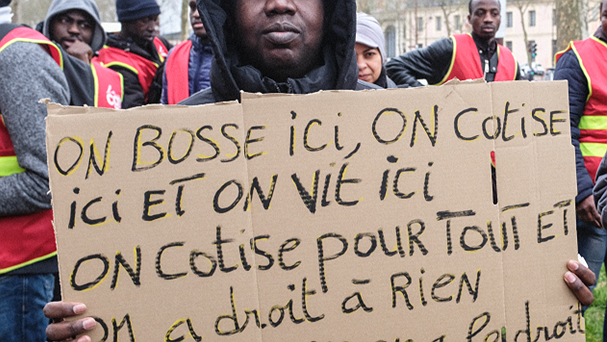 ON BOSSE ici, ON COTiSE
iCi ET ON Vit iCi
ON COTiSE POUR TOUT ET
ON a droit à RIEN
le droit